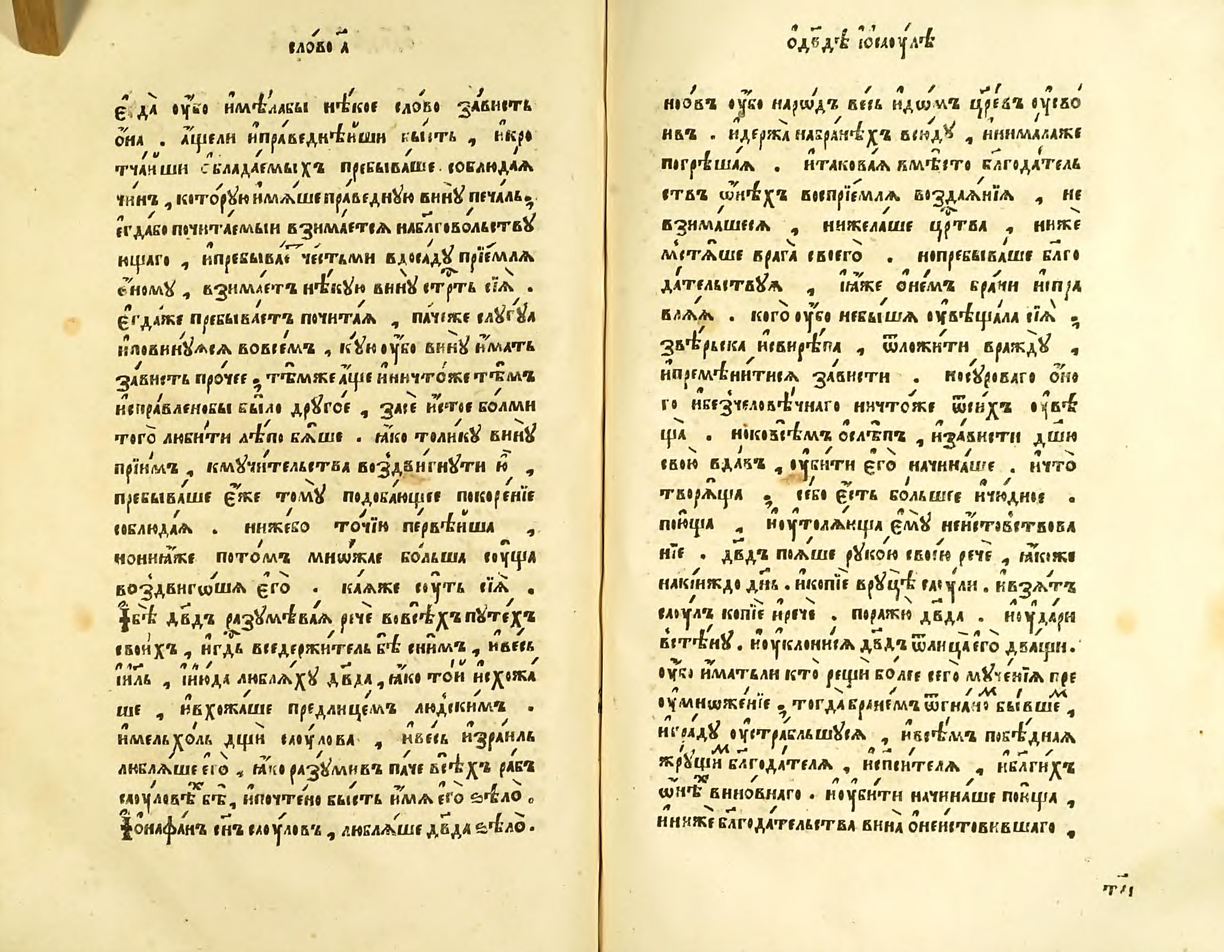 сло́во а҃
Є҆ да̀ оу҆́бо и҆мѣ́лабы нѣ́кое сло́во за́висть
ѻ҆́на . а҆́щели и҆праведнѣ́йши бы́сть , и҆кро
тча́йши ѡ҆бладаемыхъ пребыва́ше . соблюда́ѧ
чи́нъ , кото́рую и҆мѧ́ше пра́ведную вину̀ печа́ль ,
є҆гда́бо почита́емыи взима́етсѧ набл҃гово́льству
ющаго , и҆пребыва́ѧ че́стьми вдоса́ду прїе́млѧ
ѻ҆ному , взима́етъ нѣ́кую вину̀ стр҃ть сїѧ̀ .
є҆гда́же пребыва́етъ почита́ѧ , па́чеже слугу́ѧ
и҆повину́ѧсѧ вовсе́мъ , ку́ю оу҆́бо вину̀ и҆́мать
за́висть про́чее , тѣ́мже а҆́ще и҆ничто́же тѣ́мъ
и҆спра́вленобы бы́ло друго́е , засѐ и҆́стое бо́лми
того̀ люби́ти лѣ́по бѧ́ше . ꙗ҆́ко толи́ку вину̀
прїи́мъ , кмучи́тельства воздви́гнути и҆̀ ,
пребыва́ше є҆́же тому̀ подоба́ющее покоре́нїе
соблюда́ѧ . ниже́бо то́чїю пе́рвѣйша ,
нониꙗ҆́же пото́мъ мно́жае бо́льша соу́ща
воздвиго́шѧ є҆го̀ . ка́ѧже соу́ть сїѧ̀ .
І҆ бѣ̀ дв҃дъ разумѣва́ѧ речѐ вовсѣ́хъ путе́хъ
свои́хъ , и҆гд҃ь вседержи́тель бѣ̀ сни́мъ , и҆ве́сь
і҆и҃ль , и҆і҆ю́да люблѧ́ху дв҃да , ꙗ҆́ко то́й и҆схожа
ше , и҆вхожа́ше предлице́мъ лю́дскимъ .
и҆мельхо́ль дщѝ саоу́лова , и҆ве́сь и҆зра́иль
люблѧ́ше є҆го̀ , ꙗ҆́ко разуми́въ па́че всѣ́хъ ра́бъ
саоу́ловѣхъ бѣ̀ , и҆почтено̀ бы́сть и҆́мѧ є҆го̀ ѕѣлѡ̀ .
І҆онаѳа́нъ сн҃ъ саоу́ловъ , люблѧ́ше дв҃да ѕѣлѡ̀ .
ѻ҆дв҃дѣ і҆оса́оу́лѣ
но́въ оу҆́бо наро́дъ ве́сь и҆до́мъ цр҃е́въ оу҆сво́
ивъ . и҆держа̀ набра́нѣхъ всю́ду , ниима́лаже
погрѣша́ѧ . и҆такова́ѧ вмѣ́сто бл҃года́тель
ствъ ѿнѣ́хъ воспрїе́млѧ воздаѧ́нїѧ , не
взима́шесѧ , нижела́ше цр҃тва , ниже
мстѧ́ше врага̀ своего̀ . нопребыва́ше бл҃го
да́тельствуѧ , ꙗ҆́же ѻ҆не́мъ бра́чи и҆спра
влѧ́ѧ . кого̀ оу҆́бо небы́шѧ оу҆вѣща́ла сїѧ̀ ,
звѣ́рьска и҆свирѣ́па , ѿложи́ти вражду̀ ,
и҆премѣни́тисѧ за́висти . носу́роваго ѻ҆но
го̀ и҆безчеловѣ́чнаго ничто́же ѿси́хъ оу҆вѣ
ща̀ . ноковсѣ́мъ ѻ҆слѣ́пъ , и҆за́висти дш҃ю
свою̀ вда́въ , оу҆би́ти є҆го̀ начина́ше . и҆что̀
творѧ́ща , се́бо є҆́сть бо́льшее и҆чю́дное .
пою́ща , и҆оу҆толѧ́юща є҆му̀ неи́стовствова
нїе . дв҃дъ поѧ́ше руко́ю свое́ю речѐ , ꙗ҆́коже
нако́иждо дн҃ь . и҆копїѐ вруцѣ̀ саоу́ли . и҆взѧ́тъ
саоу́лъ копїѐ и҆речѐ . поражю̀ дв҃да . и҆оу҆да́ри
встѣ́ну . и҆оу҆клони́сѧ дв҃дъ ѿлица̀ є҆го̀ два́щи .
оу҆́бо и҆́матьли кто̀ рещѝ бо́лее сего̀ муче́нїѧ пре
оу҆множе́нїе , тогда̀ бране́мъ ѿгна́номъ бы́вшемъ ,
и҆гра́ду оу҆стра́бльшусѧ , и҆всѣ́мъ побѣ́днаѧ
жру́щимъ бл҃года́телѧ , и҆спси́телѧ , и҆бл҃ги́хъ
ѿнѣ́хъ вино́внаго . и҆оу҆би́ти начина́ше пою́ща ,
и҆ниже бл҃года́тельства вина̀ ѻ҆неи́стовившаго ,